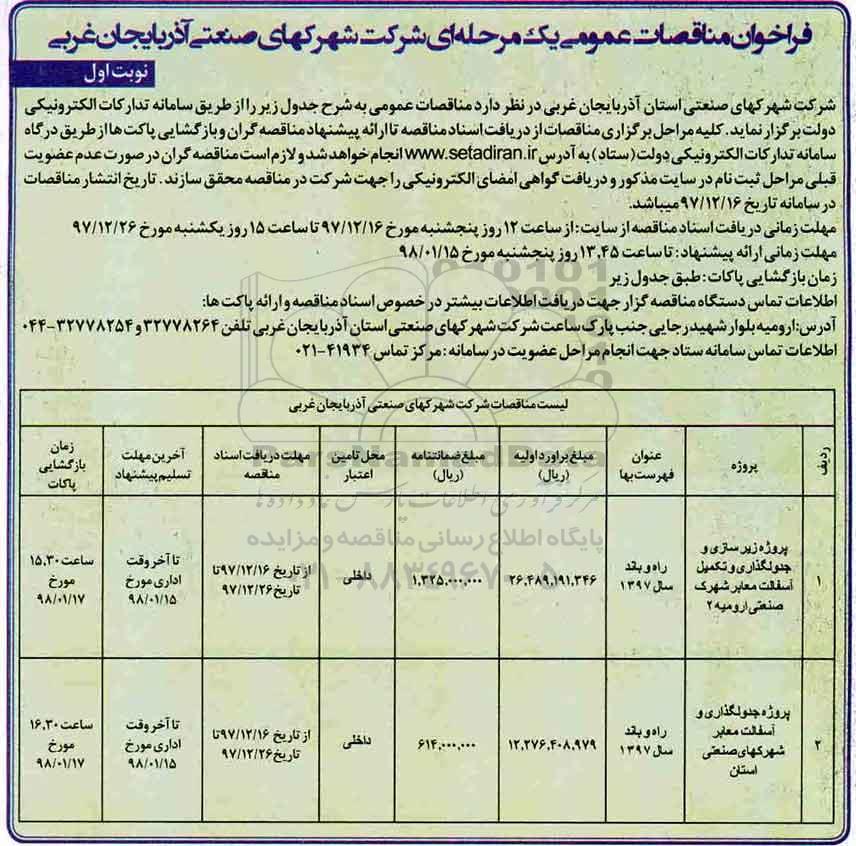 فراخوان مناقصات عمومی یک مرحله‌ای شرکت شهرکهای صنعتی آذربایجان غربی
نوبت اول
شرکت شهرکهای صنعتی استان آذربایجان غربی در نظر دارد مناقصات عمومی به شرح جدول زیر را از طریق سامانه تدارکات الکترونیکی
دولت برگزار نماید. کلیه مراحل برگزاری مناقصات از دریافت اسناد مناقصه تا ارائه پیشنهاد مناقصه گران و بازگشایی پاکت ها از طریق درگاه
سامانه تدارکات الکترونیکی دولت (ستاد) به آدرس www.setadiran.ir انجام خواهد شد و لازم است مناقصه گران در صورت عدم عضویت
قبلی مراحل ثبت نام در سایت مذکور و دریافت گواهی امضای الکترونیکی را جهت شرکت در مناقصه محقق سازند. تاریخ انتشار مناقصات
در سامانه تاریخ ۹۷/۱۲/۱۶ میباشد.
مهلت زمانی دریافت اسناد مناقصه از سایت: از ساعت ۱۲ روز پنجشنبه مورخ ۹۷/۱۲/۱۶ تا ساعت ۱۵ روز یکشنبه مورخ ۹۷/۱۲/۲۶
مهلت زمانی ارائه پیشنهاد: تا ساعت ۱۳،۴۵ روز پنجشنبه مورخ ۹۸/۰۱/۱۵
زمان بازگشایی پاکات: طبق جدول زیر
اطلاعات تماس دستگاه مناقصه گزار جهت دریافت اطلاعات بیشتر در خصوص اسناد مناقصه و ارائه پاکت ها:
آدرس: ارومیه بلوار شهید رجایی جنب پارک ساعت شرکت شهرکهای صنعتی استان آذربایجان غربی تلفن ۳۲۷۷۸۲۶۴ و ۳۲۷۷۸۲۵۴-۰۴۴
اطلاعات تماس سامانه ستاد جهت انجام مراحل عضویت در سامانه: مرکز تماس ۴۱۹۳۴-۰۲۱
لیست مناقصات شرکت شهرکهای صنعتی آذربایجان غربی
ردیف
پروژه
عنوان
فهرست بها
مبلغ براورد اولیه
(ریال)
مبلغ ضمانتنامه
(ریال)
محل تامین
اعتبار
مهلت دریافت اسناد
مناقصه
آخرین مهلت
تسلیم پیشنهاد
زمان
بازگشایی
پاکات
۱
پروژه زیر سازی و
جدولگذاری و تکمیل
آسفالت معابر شهرک
صنعتی ارومیه ۲
راه و باند
سال ۱۳۹۷
۲۶،۴۸۹،۱۹۱،۳۴۶
۱،۳۲۵،۰۰۰،۰۰۰
داخلی
از تاریخ ۹۷/۱۲/۱۶ تا
تاریخ ۹۷/۱۲/۲۶
تا آخر وقت
اداری مورخ
۹۸/۰۱/۱۵
ساعت ۱۵،۳۰
مورخ
۹۸/۰۱/۱۷
۲
پروژه جدولگذاری و
آسفالت معابر
شهرکهای صنعتی
استان
راه و باند
سال ۱۳۹۷
۱۲،۲۷۶،۴۰۸،۹۷۹
۶۱۴،۰۰۰،۰۰۰
داخلی
از تاریخ ۹۷/۱۲/۱۶ تا
تاریخ ۹۷/۱۲/۲۶
تا آخر وقت
اداری مورخ
۹۸/۰۱/۱۵
ساعت ۱۶،۳۰
مورخ
۹۸/۰۱/۱۷
ParsNamadData
مرکز فرآوری اطلاعات پارس نماد داده ها
پایگاه اطلاع رسانی مناقصه و مزایده